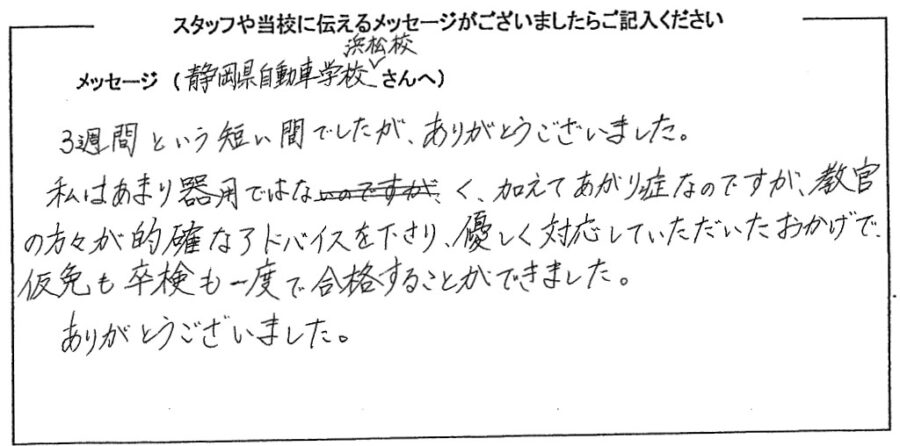 スタッフや当校に伝えるメッセージがございましたらご記入ください
浜松校
メッセージ（静岡県自動車学校さんへ）
3週間という短い間でしたが、ありがとうございました。
私はあまり器用ではないのですが、く、加えてあがり症なのですが、教官
の方々が的確なアドバイスを下さり、優しく対応していただいたおかげで、
仮免も卒検も一度で合格することができました。
ありがとうございました。